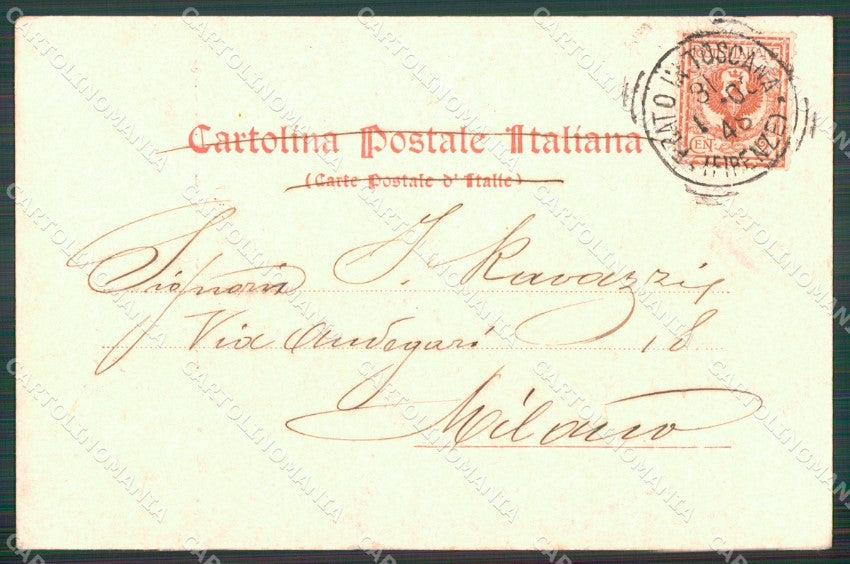 Cartolina Postale Italiana
(Carte Postale d' Italie)
PRATO IN TOSCANA
(FIRENZE)
CEN. 2
Signorin
J. Ravazzi
Via Andegari 18
Milano
CARTOLINOMANIA